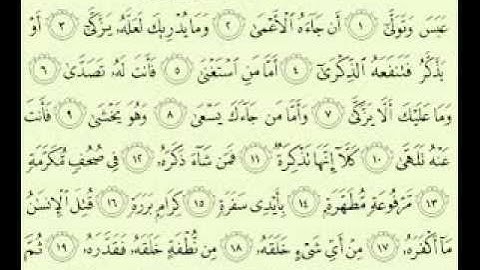 عَبَسَ وَتَوَلَّىٰٓ ١ أَن جَآءَهُ ٱلْأَعْمَىٰ ٢ وَمَا يُدْرِيكَ لَعَلَّهُۥ يَزَّكَّىٰٓ ٣ أَوْ
يَذَّكَّرُ فَتَنفَعَهُ ٱلذِّكْرَىٰٓ ٤ أَمَّا مَنِ ٱسْتَغْنَىٰ ٥ فَأَنتَ لَهُۥ تَصَدَّىٰ ٦
وَمَا عَلَيْكَ أَلَّا يَزَّكَّىٰ ٧ وَأَمَّا مَن جَآءَكَ يَسْعَىٰ ٨ وَهُوَ يَخْشَىٰ ٩ فَأَنتَ
عَنْهُ تَلَهَّىٰ ١٠ كَلَّآ إِنَّهَا تَذْكِرَةٌ ١١ فَمَن شَآءَ ذَكَرَهُۥ ١٢ فِى صُحُفٍ مُّكَرَّمَةٍ
١٣ مَّرْفُوعَةٍ مُّطَهَّرَةٍۭ ١٤ بِأَيْدِى سَفَرَةٍ ١٥ كِرَامٍۭ بَرَرَةٍ ١٦ قُتِلَ ٱلْإِنسَٰنُ
مَآ أَكْفَرَهُۥ ١٧ مِنْ أَىِّ شَىْءٍ خَلَقَهُۥ ١٨ مِن نُّطْفَةٍ خَلَقَهُۥ فَقَدَّرَهُۥ ١٩ ثُمَّ